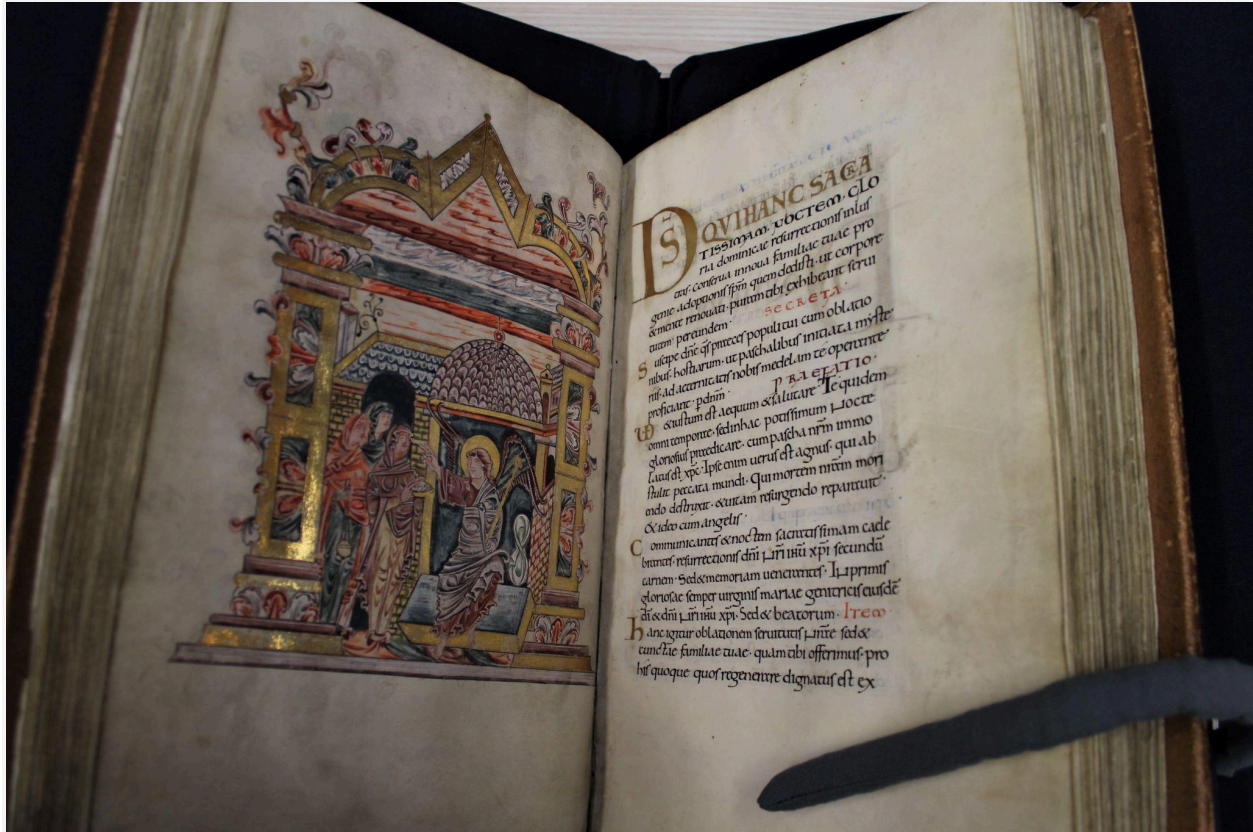 DS QVI HANC SACRA
TISSIMAM NOCTEM, GLO
ria dominicae resurrectionis inlus
tras. Conserua in noua familiae tuae pro
genie adoptionis spm quem dedisti. ut corpore
& mente renouati. puram tibi exhibeant serui
tutem. per eundem. SECRETA.
Suscipe dne qs preces populi tui cum oblatio
nibus hostiarum. ut paschalibus initiata myste
riis. ad aeternitatis nobis medelam te operante
proficiant. p dnm. PRAEFATIO.
& iustum est aequum & salutare. Te quidem
omni tempore. sed in hac potissimum nocte
gloriosius praedicare. cum pascha nrm immo
latus est xpc. Ipse enim uerus est agnus. qui ab
stulit peccata mundi. Qui mortem nram mori
endo destruxit. & uitam resurgendo reparauit.
& ideo cum angelis.
Communicantes & noctem sacratissimam cele
brantes. resurrectionis dni nri ihu xpi secundu
carnem. Sed & memoriam uenerantes. In primis
gloriosae semper uirginis mariae genitricis eiusde
di & dni nri ihu xpi. Sed & beatorum. Item
hanc igitur oblationem seruitutis nrae sed &
cunctae familiae tuae. quam tibi offerimus. pro
his quoque quos regenerare dignatus est ex